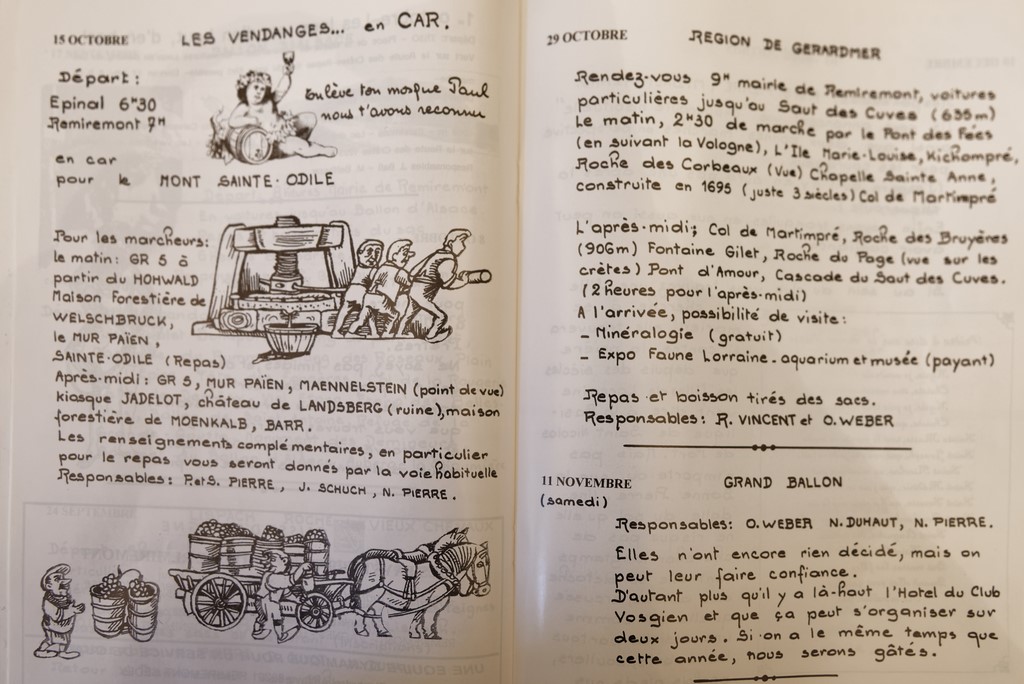 15 OCTOBRE
LES VENDANGES... en CAR.
Départ :
Epinal 6H30
Remiremont 7H
Enlève ton masque Paul
nous t'avons reconnu
en car
pour le MONT SAINTE-ODILE
Pour les marcheurs:
le matin: GR 5 à
partir du HOHWALD
Maison Forestière de
WELSCHBRUCK,
le MUR PAÏEN,
SAINTE-ODILE (Repas)
Après-midi: GR 5, MUR PAÏEN, MAENNELSTEIN (point de vue)
kiosque JADELOT, château de LANDSBERG (ruine), maison
forestière de MOENKALB, BARR.
Les renseignements complémentaires, en particulier
pour le repas vous seront donnés par la voie habituelle
Responsables: P. et S. PIERRE, J. SCHUCH, N. PIERRE.
29 OCTOBRE
REGION DE GERARDMER
Rendez-vous 9H mairie de Remiremont, voitures
particulières jusqu'au Saut des Cuves (695m)
Le matin, 2H30 de marche par le Pont des Fées
(en suivant la Vologne), L'Ile Marie-Louise, Kichompré,
Roche des Corbeaux (Vue) Chapelle Sainte Anne,
construite en 1695 (juste 3 siècles) Col de Martimpré
L'après-midi; Col de Martimpré, Roche des Bruyères
(906m) Fontaine Gilet, Roche du Page (vue sur les
crêtes) Pont d'Amour, Cascade du Saut des Cuves.
(2 heures pour l'après-midi)
A l'arrivée, possibilité de visite:
- Minéralogie (gratuit)
- Expo Faune Lorraine. aquarium et musée (payant)
Repas et boisson tirés des sacs.
Responsables: R. VINCENT et O. WEBER
11 NOVEMBRE
(samedi)
GRAND BALLON
Responsables: O. WEBER N. DUHAUT, N. PIERRE.
Elles n'ont encore rien décidé, mais on
peut leur faire confiance.
D'autant plus qu'il y a là-haut l'Hotel du Club
Vosgien et que ça peut s'organiser sur
deux jours. Si on a le même temps que
cette année, nous serons gâtés.